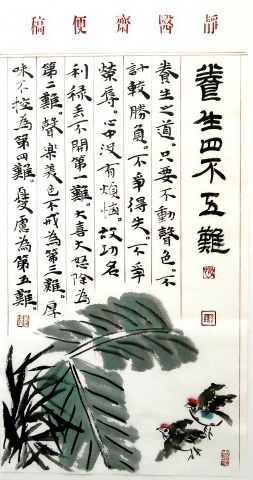 靜醫齋便稿
養生四不五難
養生之道。只要不動聲色。不
計較勝負。不爭得失。不爭
榮辱。心中沒有煩惱。故功名
利祿丟不開第一難。大喜大怒除為
第二難。聲樂美色不戒為第三難。厚
味不控為第四難。憂慮為第五難。